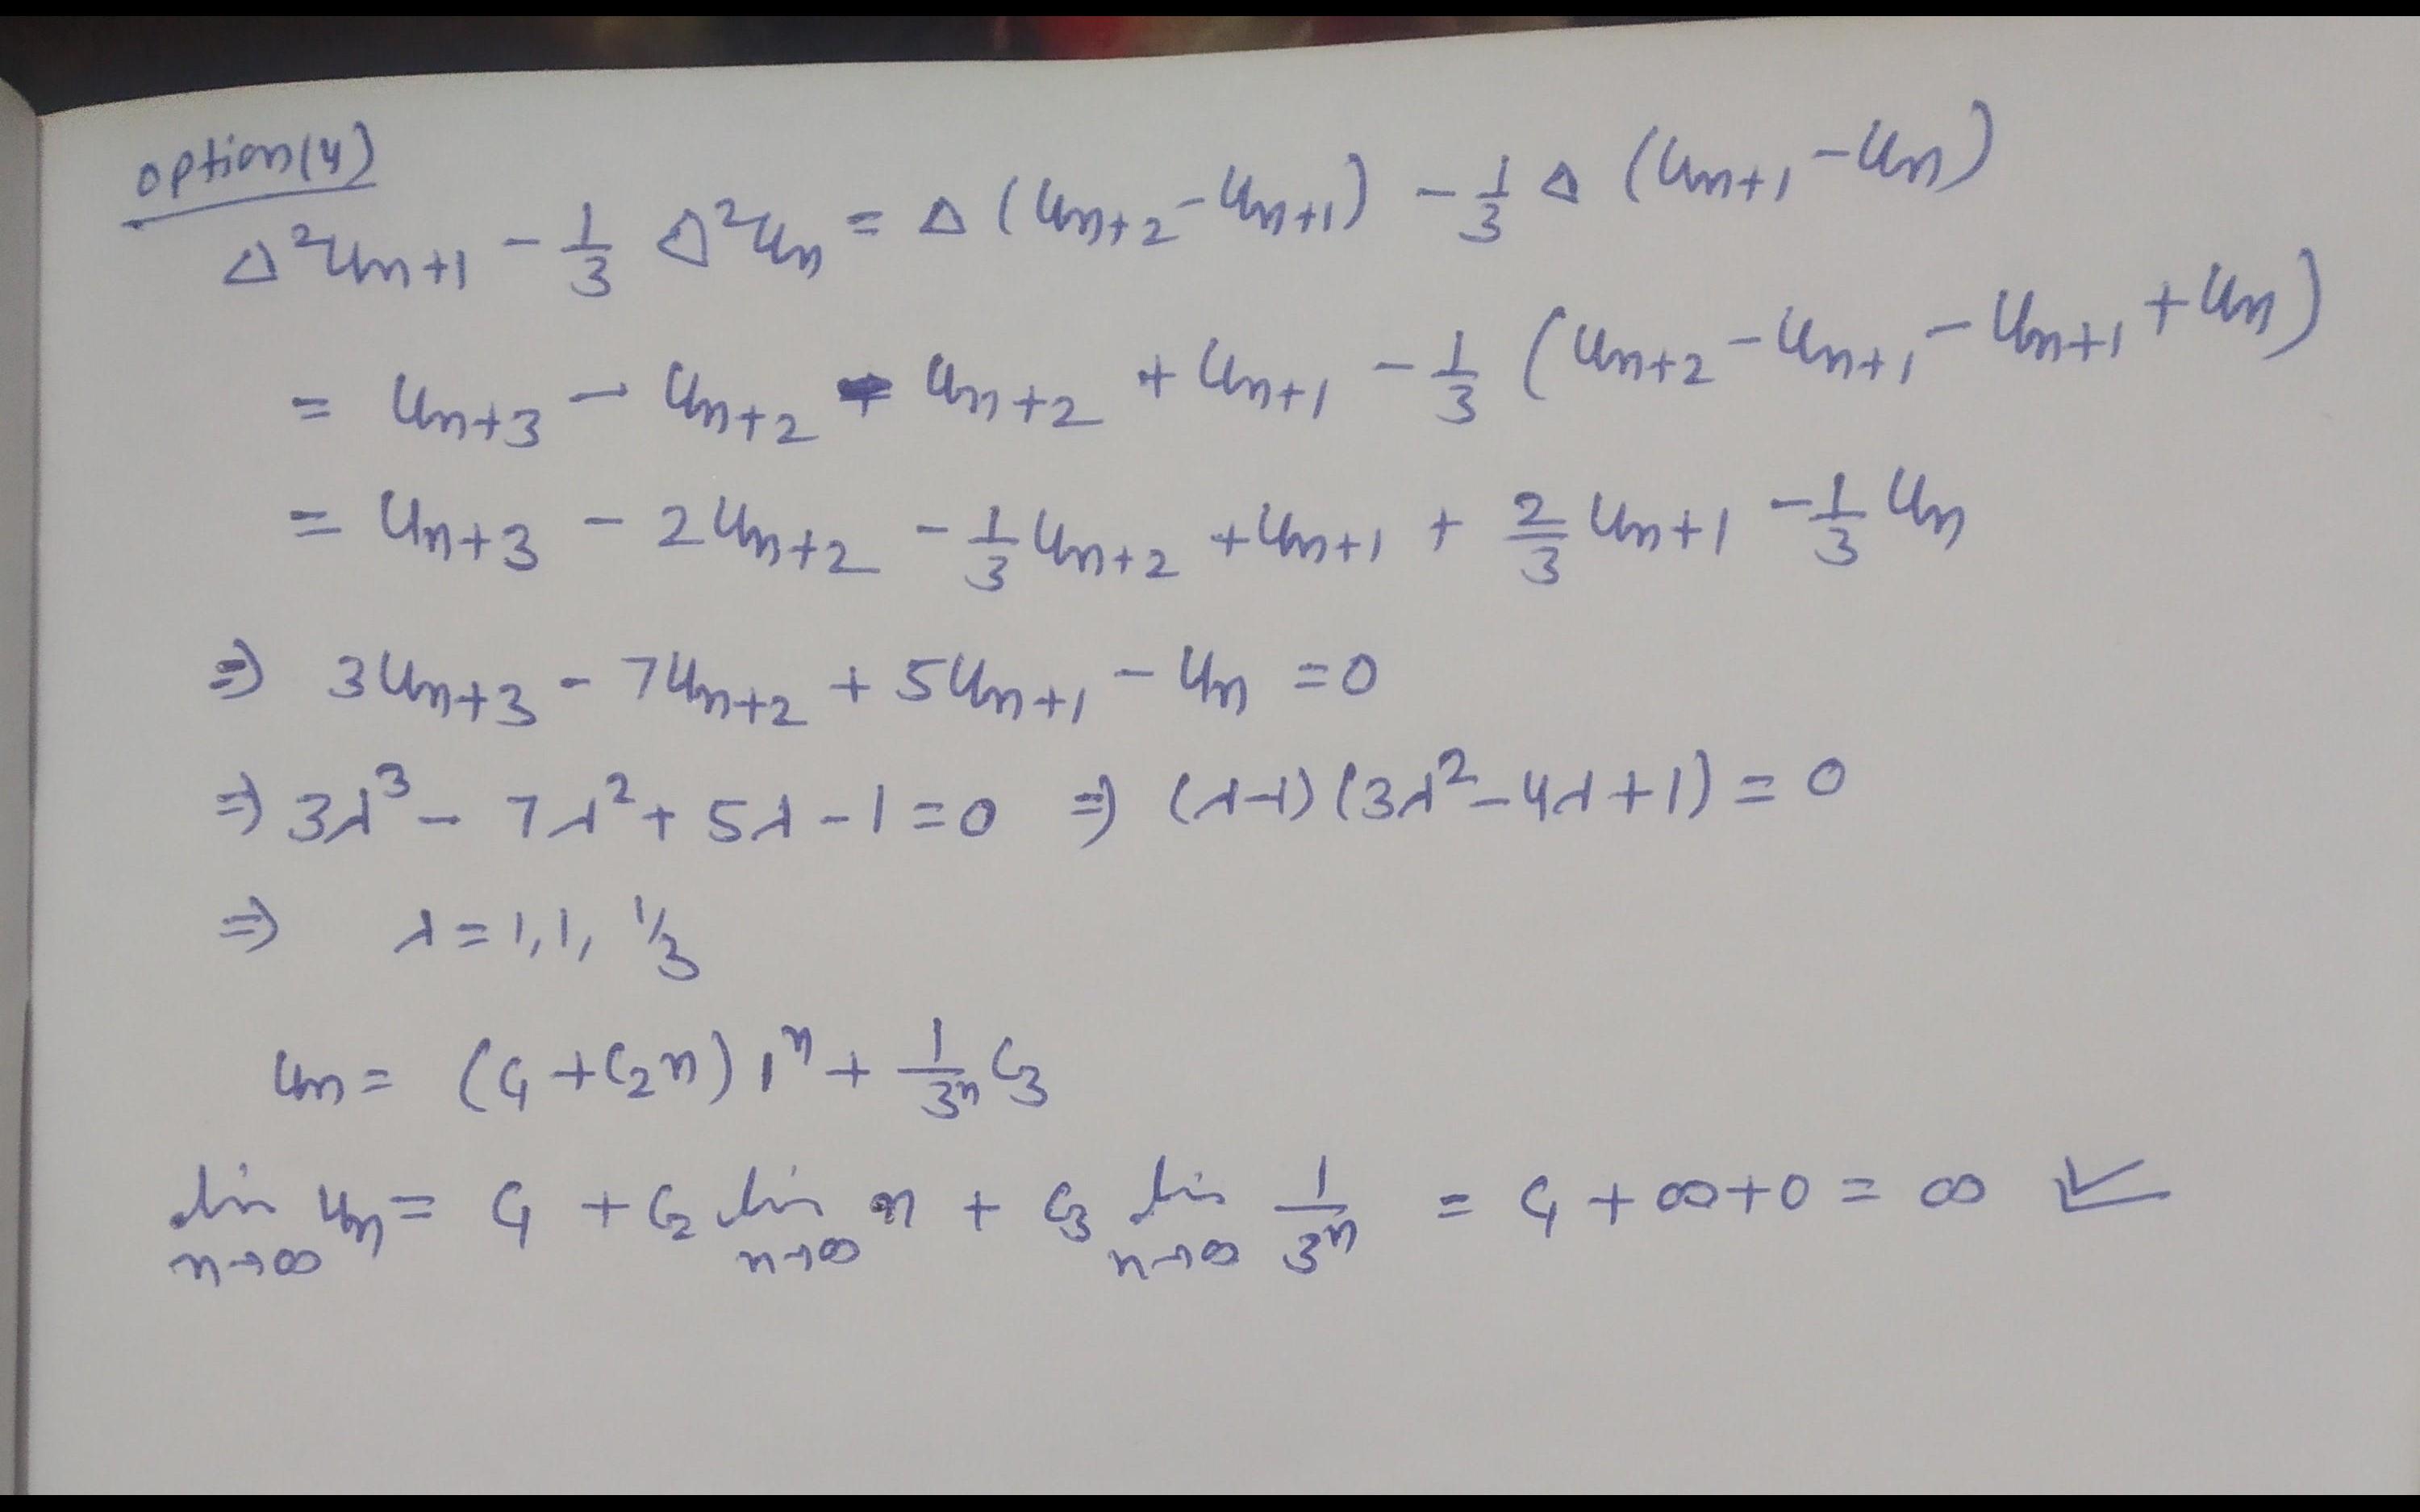 option(4)
Δ²uₙ₊₁ - 1/3 Δ²uₙ = Δ(uₙ₊₂ - uₙ₊₁) - 1/3 Δ(uₙ₊₁ - uₙ)
= uₙ₊₃ - uₙ₊₂ - uₙ₊₂ + uₙ₊₁ - 1/3 (uₙ₊₂ - uₙ₊₁ - uₙ₊₁ + uₙ)
= uₙ₊₃ - 2uₙ₊₂ - 1/3 uₙ₊₂ + uₙ₊₁ + 2/3 uₙ₊₁ - 1/3 uₙ
⇒ 3uₙ₊₃ - 7uₙ₊₂ + 5uₙ₊₁ - uₙ = 0
⇒ 3λ³ - 7λ² + 5λ - 1 = 0 ⇒ (λ-1)(3λ² - 4λ + 1) = 0
⇒ λ = 1, 1, 1/3
uₙ = (c₁ + c₂n) 1ⁿ + 1/3ⁿ c₃
lim n→∞ uₙ = c₁ + c₂ lim n→∞ n + c₃ lim n→∞ 1/3ⁿ = c₁ + ∞ + 0 = ∞ ✓